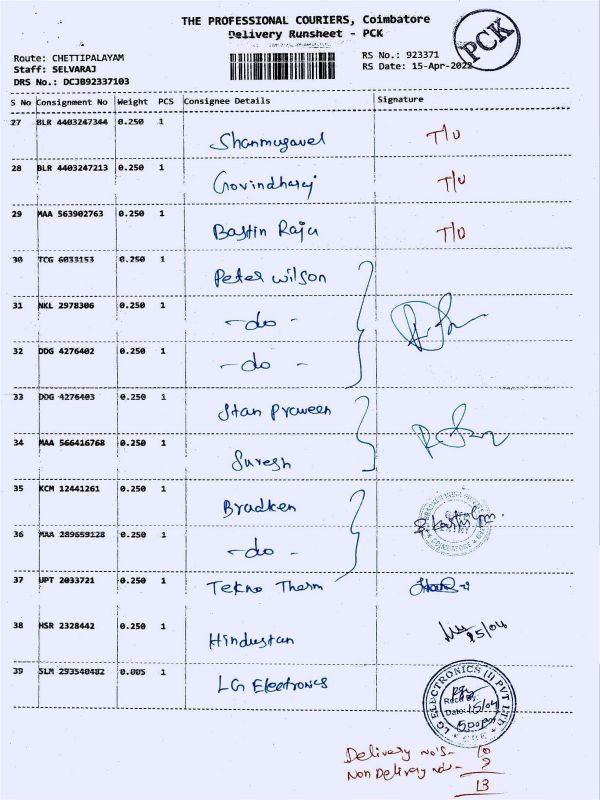 THE PROFESSIONAL COURIERS, Coimbatore
Delivery Runsheet - PCK
PCK
Route: CHETTIPALAYAM
RS No.: 923371
Staff: SELVARAJ
RS Date: 15-Apr-2022
DRS No.: DCJB92337103
S No Consignment No Weight PCS Consignee Details Signature
27 BLR 4403247344 0.250 1 Shanmugavel T/U
28 BLR 4403247213 0.250 1 Govindharaj T/U
29 MAA 563902763 0.250 1 Bastin Raju T/U
30 TCG 6033153 0.250 1 Peter Wilson
31 NKL 2978306 0.250 1 -do-
32 DDG 4276402 0.250 1 -do-
33 DDG 4276403 0.250 1 Stan Praveen
34 MAA 566416768 0.250 1 Suresh
35 KCM 12441261 0.250 1 Bradken
36 MAA 289659128 0.250 1 -do-
37 UPT 2033721 0.250 1 Tekno Therm
38 HSR 2328442 0.250 1 Hindustan 15/04
39 SLM 293540482 0.005 1 LG Electronics
LG ELECTRONICS (I) PVT LTD
Date: 15/04
5:00pm
Delivery no's- 10
Non Delivery no's- 3
13